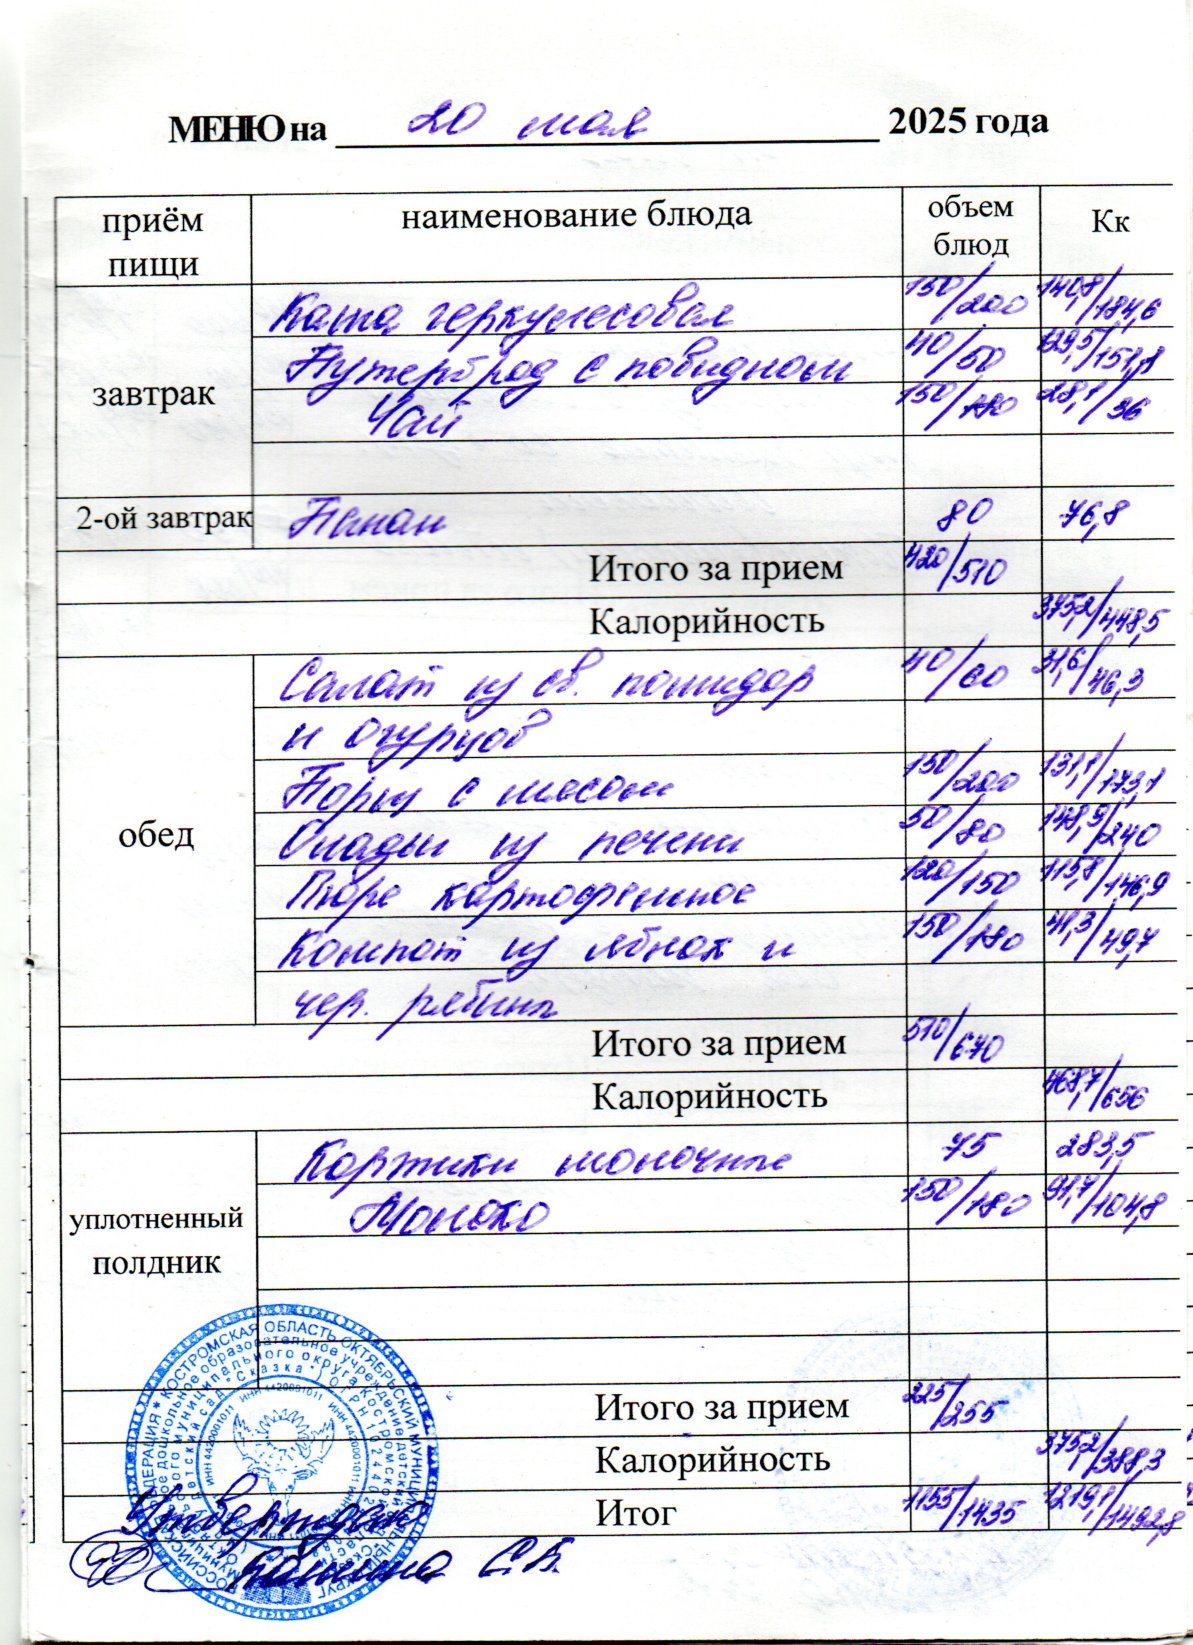 МЕНЮ на 20 мая 2025 года
приём пищи наименование блюда объем блюд Кк
завтрак
Каша геркулесовая 150/200 140,8/184,6
Бутерброд с повидлом 40/50 129,5/151,8
Чай 150/180 28,1/36
2-ой завтрак Банан 80 76,8
Итого за прием 420/510
Калорийность 375,2/448,5
обед
Салат из св. помидор 40/60 31,6/46,3
и огурцов
Борщ с мясом 150/200 131,1/173,1
Оладьи из печени 50/80 148,9/240
Пюре картофельное 120/150 115,8/146,9
Компот из яблок и 150/180 41,3/49,7
чер. рябины
Итого за прием 510/670
Калорийность 468,7/656
уплотненный полдник
Коржики молочные 75 283,5
Молоко 150/180 91,7/104,8
Итого за прием 225/255
Калорийность 375,2/388,3
Итог 1155/1435 1219,1/1492,8
КОСТРОМСКАЯ ОБЛАСТЬ ОКТЯБРЬСКИЙ МУНИЦИПАЛЬНЫЙ ОКРУГ
детский сад "Сказка"
ИНН 4420001011
Утверждаю
С.В.